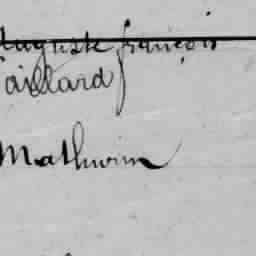 Auguste françois
aillard
Mathurin